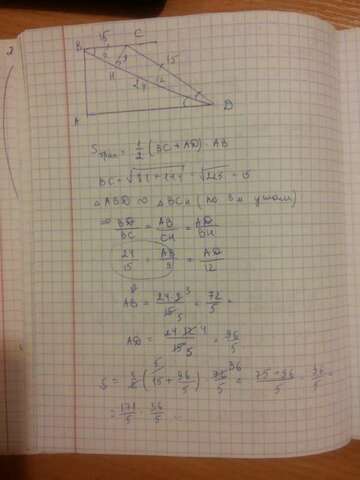 2
15
C
B
9
15
H
12
24
D
A
Sтрап = 1/2 (BC + AD) · AB
BC = √81+144 = √225 = 15
△ABD ∾ △BCH (по 3м углам)
⇒ BD/BC = AB/CH = AD/BH
24/15 = AB/9 = AD/12
AB = 24·9 3/15 5 = 72/5 =
AD = 24·12 4/15 5 = 96/5
S = 1/2 (15 + 96/5) · 72 36/5 = 75+96/5 · 36/5 =
= 171/5 · 36/5